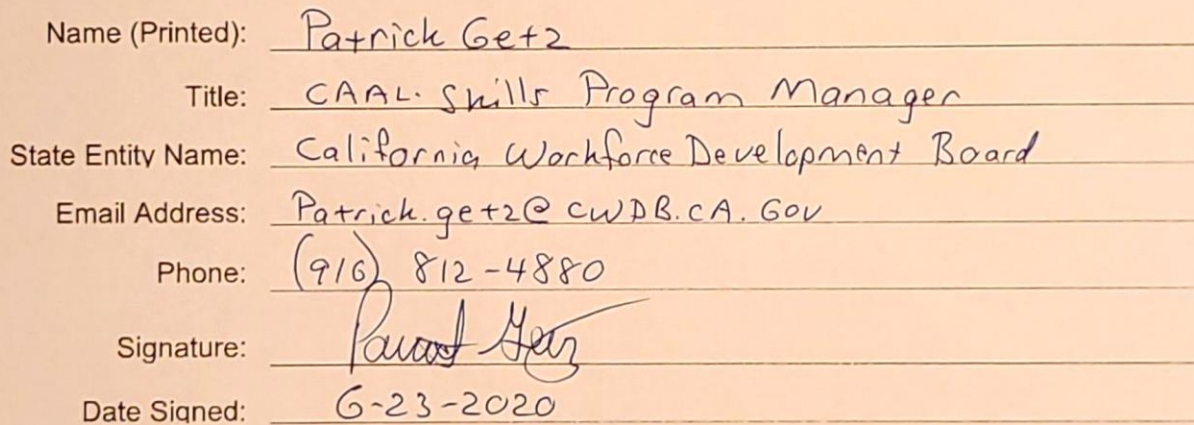 Name (Printed): Patrick Getz
Title: CAAL-Skills Program Manager
State Entity Name: California Workforce Development Board
Email Address: Patrick.getz@CWDB.CA.Gov
Phone: (916) 812-4880
Signature:
Date Signed: 6-23-2020